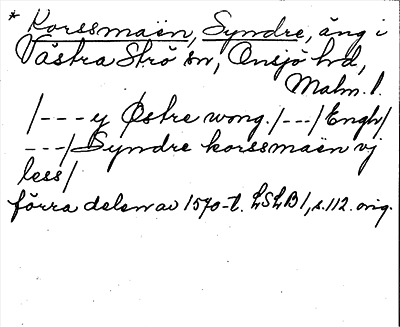 * Korssmaën, Syndre, äng i
Västra Strö sn, Onsjö hd,
Malm. l.
/--- y Østre wong. /---/ Engh/
---/ Syndre korssmaën vj
less/
förra delen av 1570-t. LSLB 1, s. 112. orig.